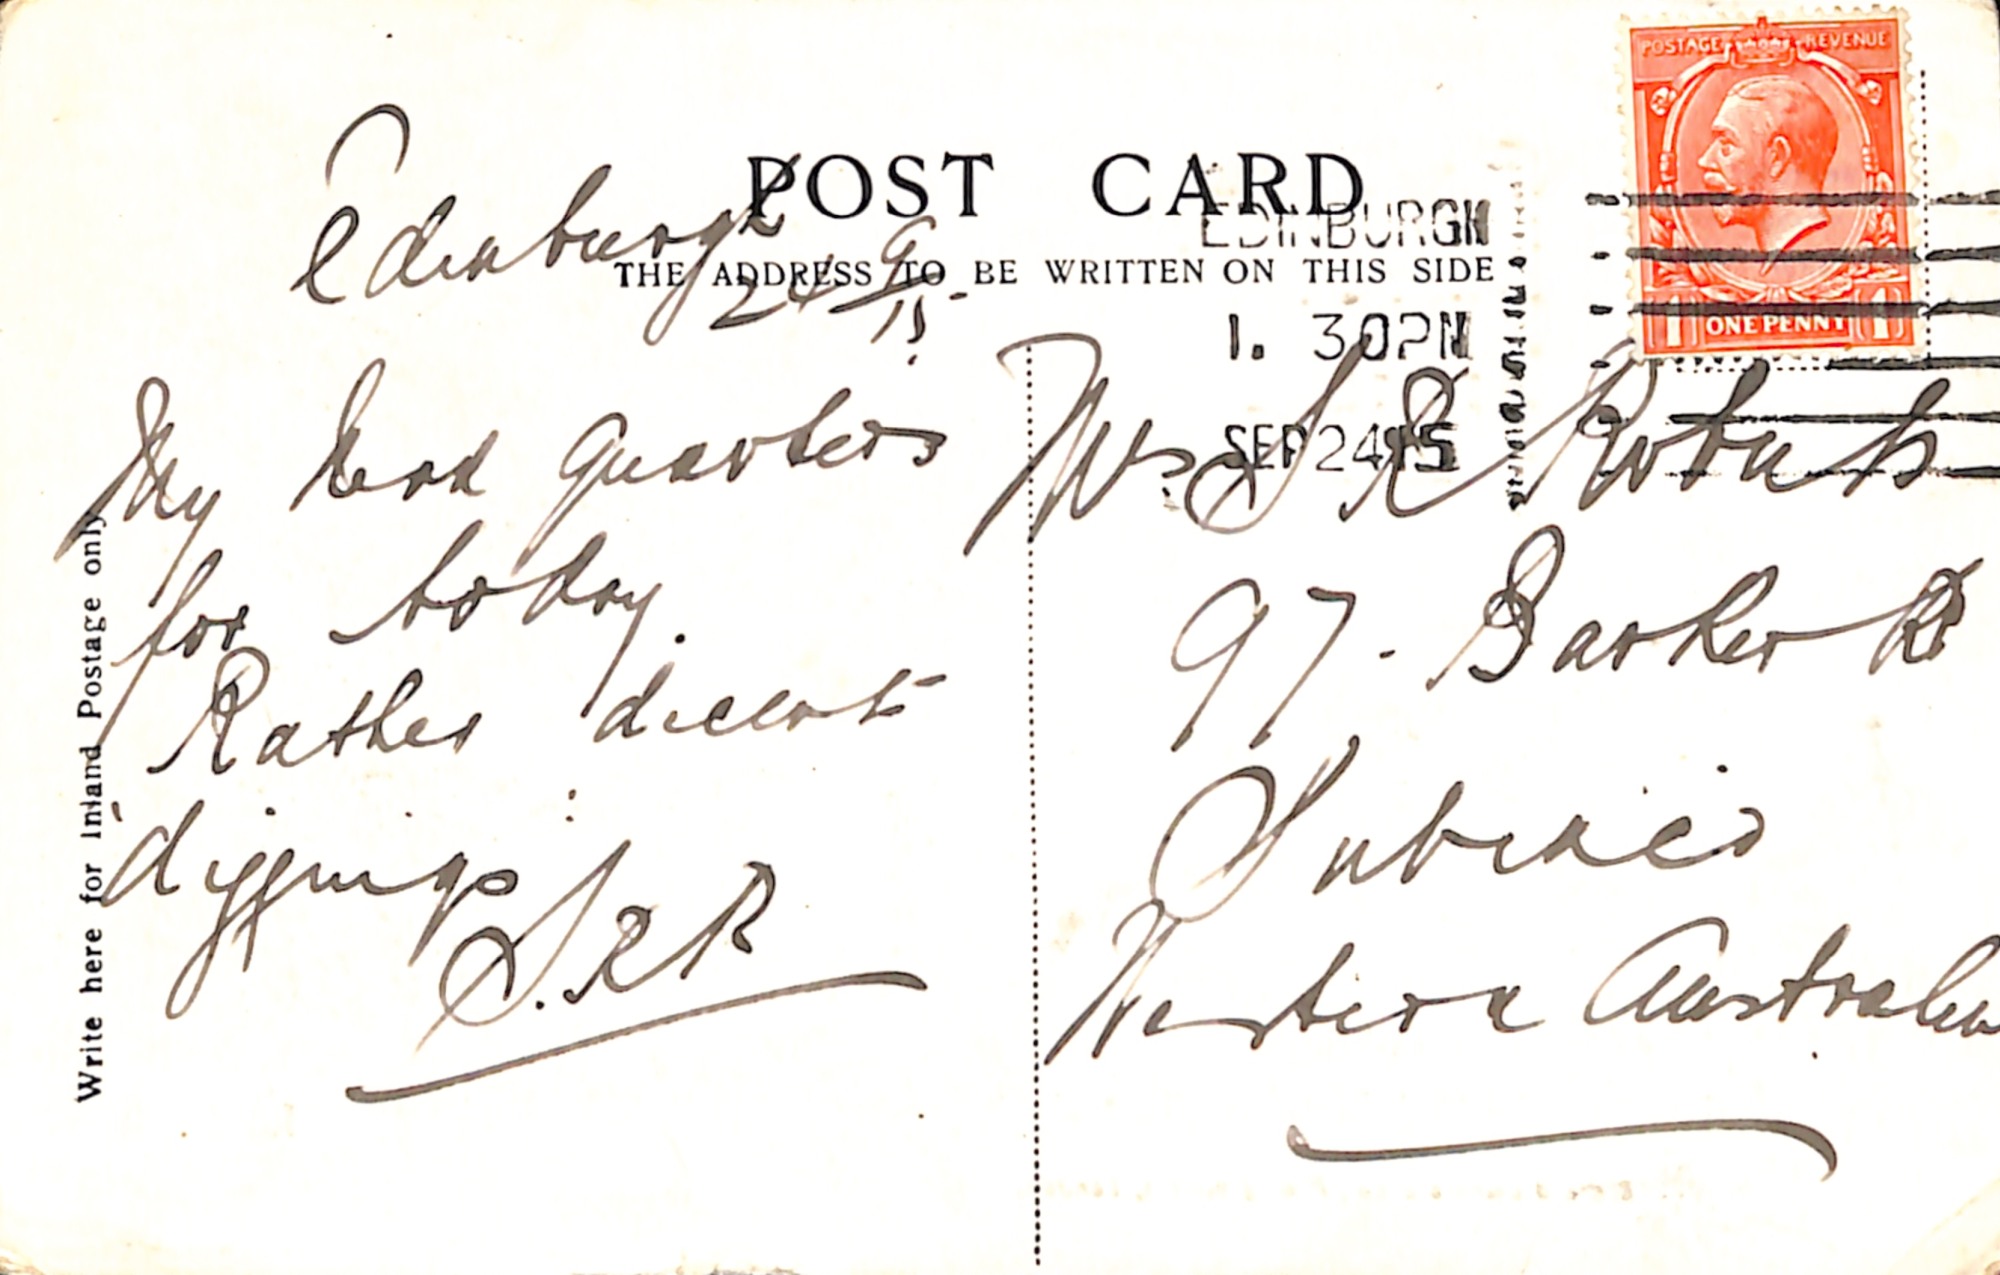 POSTAGE REVENUE
ONE PENNY
POST CARD
THE ADDRESS TO BE WRITTEN ON THIS SIDE
EDINBURGH
1. 30PM
SEP 24 15
Write here for Inland Postage only
Edinburgh
24/9/15
My head quarters
for today.
Rather decent
'diggings'
S.R.R
Mrs S R Roberts
97 - Barker Rd
Subiaco
Western Australia